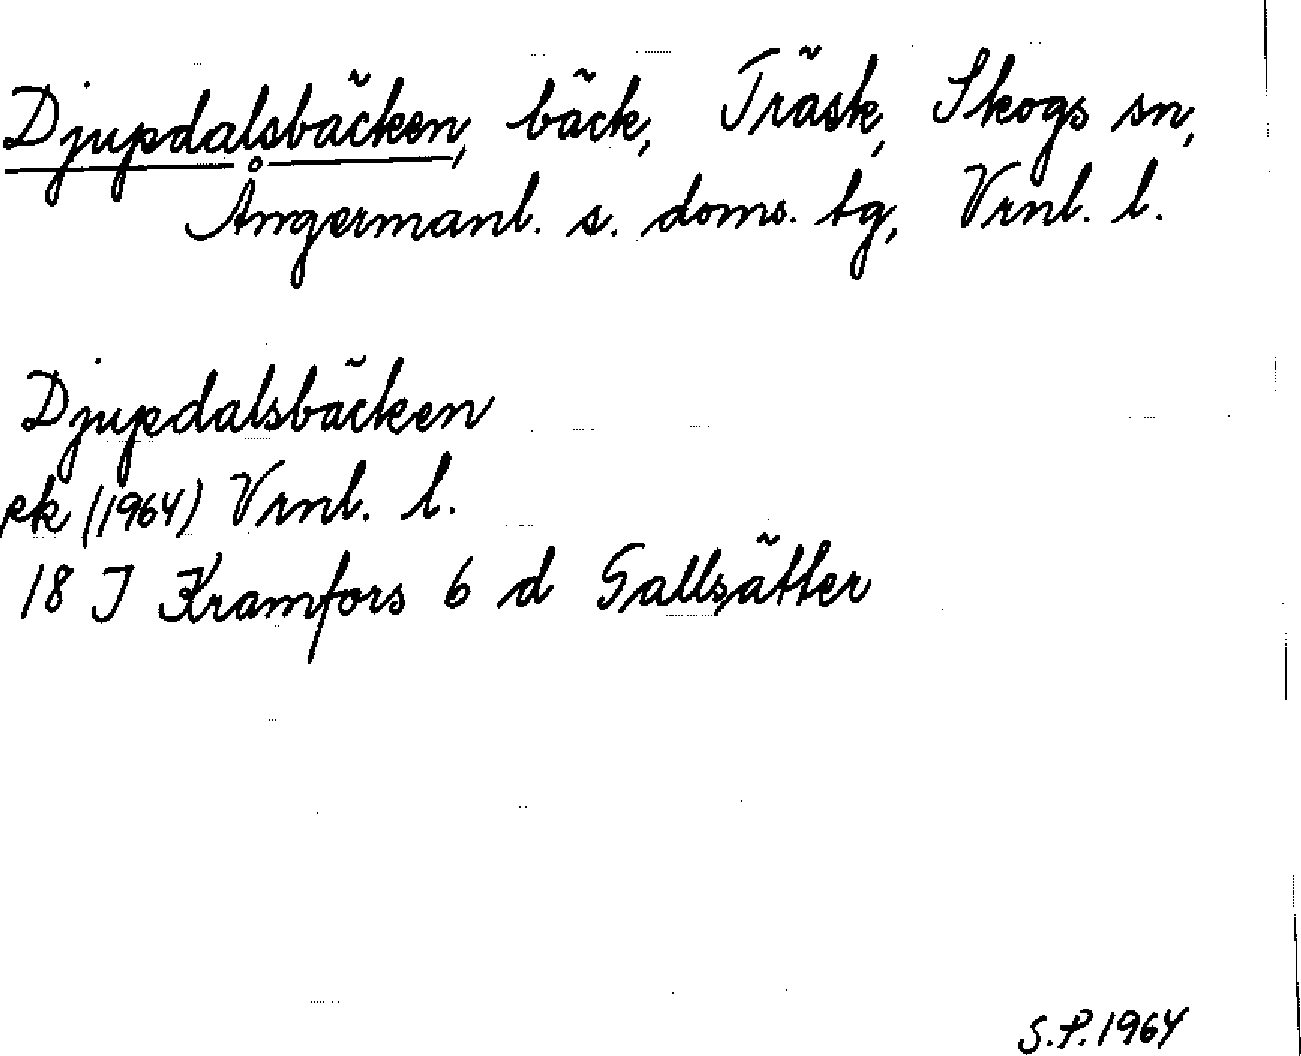 Djupdalsbäcken, bäck, Träsk, Skogs sn,
Ångermanl. s. doms. tg, Vrnl. l.
Djupdalsbäcken
rk (1964) Vrnl. l.
18 J Kramfors 6 d Gallsätter
S.P. 1964